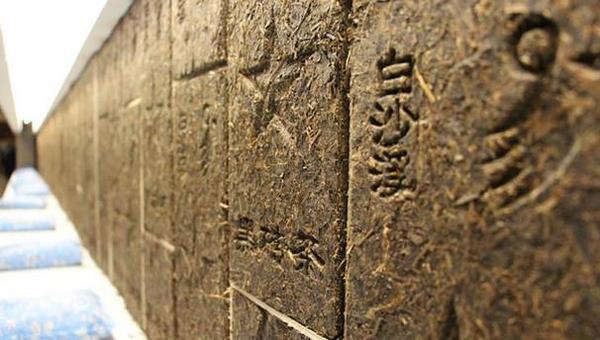 白沙溪
黑砖茶